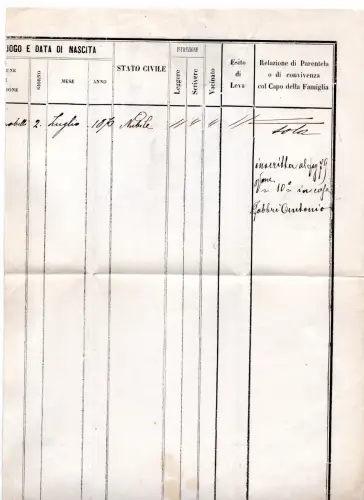 UOGO E DATA DI NASCITA
UNE
DONE
GIORNO
MESE
ANNO
STATO CIVILE
ISTRUZIONE
Leggere
Scrivere
Vaccinato
Esito
di
Leva
Relazione di Parentela
o di convivenza
col Capo della Famiglia
2 Luglio Nubile
sola
inscritta al
10° in casa
Fabbri Antonio